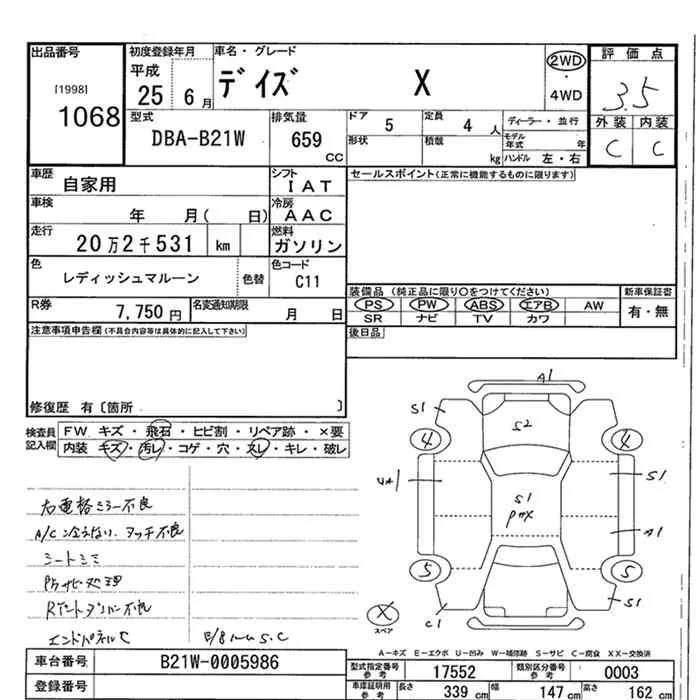 出品番号 初度登録年月 車名・グレード 評価点
[1998] 1068
平成 25年 6月
デイズ X
2WD・4WD
3.5
型式 DBA-B21W
排気量 659 CC
ドア 5 定員 4 人
形状 積載 kg
ディーラー・並行
モデル年式 年
ハンドル 左・右
外装 内装
C C
車歴 自家用
シフト IAT
セールスポイント(正常に機能するものに限ります)
車検 年 月( 日)
冷房 AAC
走行 20万2千531 km
燃料 ガソリン
色 レディッシュマルーン 色替
色コード C11
装備品 (純正品に限り○をつけてください) 新車保証書
R券 7,750円
名変通知期限 月 日
PS PW ABS エアB AW
SR ナビ TV カワ
有・無
注意事項申告欄(不具合内容等は具体的に記入して下さい)
後日品
修復歴 有〔箇所 〕
検査員記入欄
FW キズ・飛石・ヒビ割・リペア跡・×要
内装 キズ・汚レ・コゲ・穴・スレ・キレ・破レ
A1
S1 S2
4 4
S1
S1
A1
5 5
C1 S1
スペア
右電格ミラー不良
A/C冷えない タッチ不良
シートシミ
防サビ処理
エンドパネルC
下マルS.C
A-キズ E-エクボ U-凹み W-補修跡 S-サビ C-腐食 XX-交換済
車台番号 B21W-0005986
型式指定番号 参考 17552
類別区分番号 参考 0003
登録番号
車庫証明用 参考 長さ 339 cm 幅 147 cm 高さ 162 cm